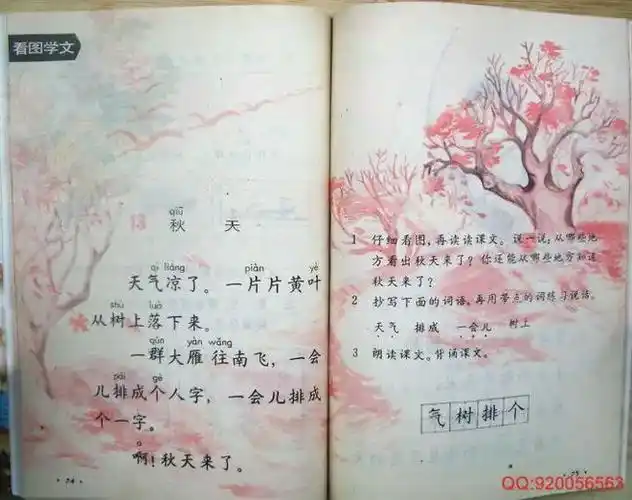 看图学文
13 秋 天
qiū
天气凉了。一片片黄叶
qì liáng piàn yè
从树上落下来。
shù luò
一群大雁往南飞，一会
qún yàn wǎng
儿排成个人字，一会儿排成
pái gè
个一字。
啊！秋天来了。
·74·
1 仔细看图，再读读课文。说一说：从哪些地
方看出秋天来了？你还能从哪些地方知道
秋天来了？
2 抄写下面的词语，再用带点的词练习说话。
天气 排成 一会儿 树上
3 朗读课文。背诵课文。
气 树 排 个
·75·
QQ:920056563